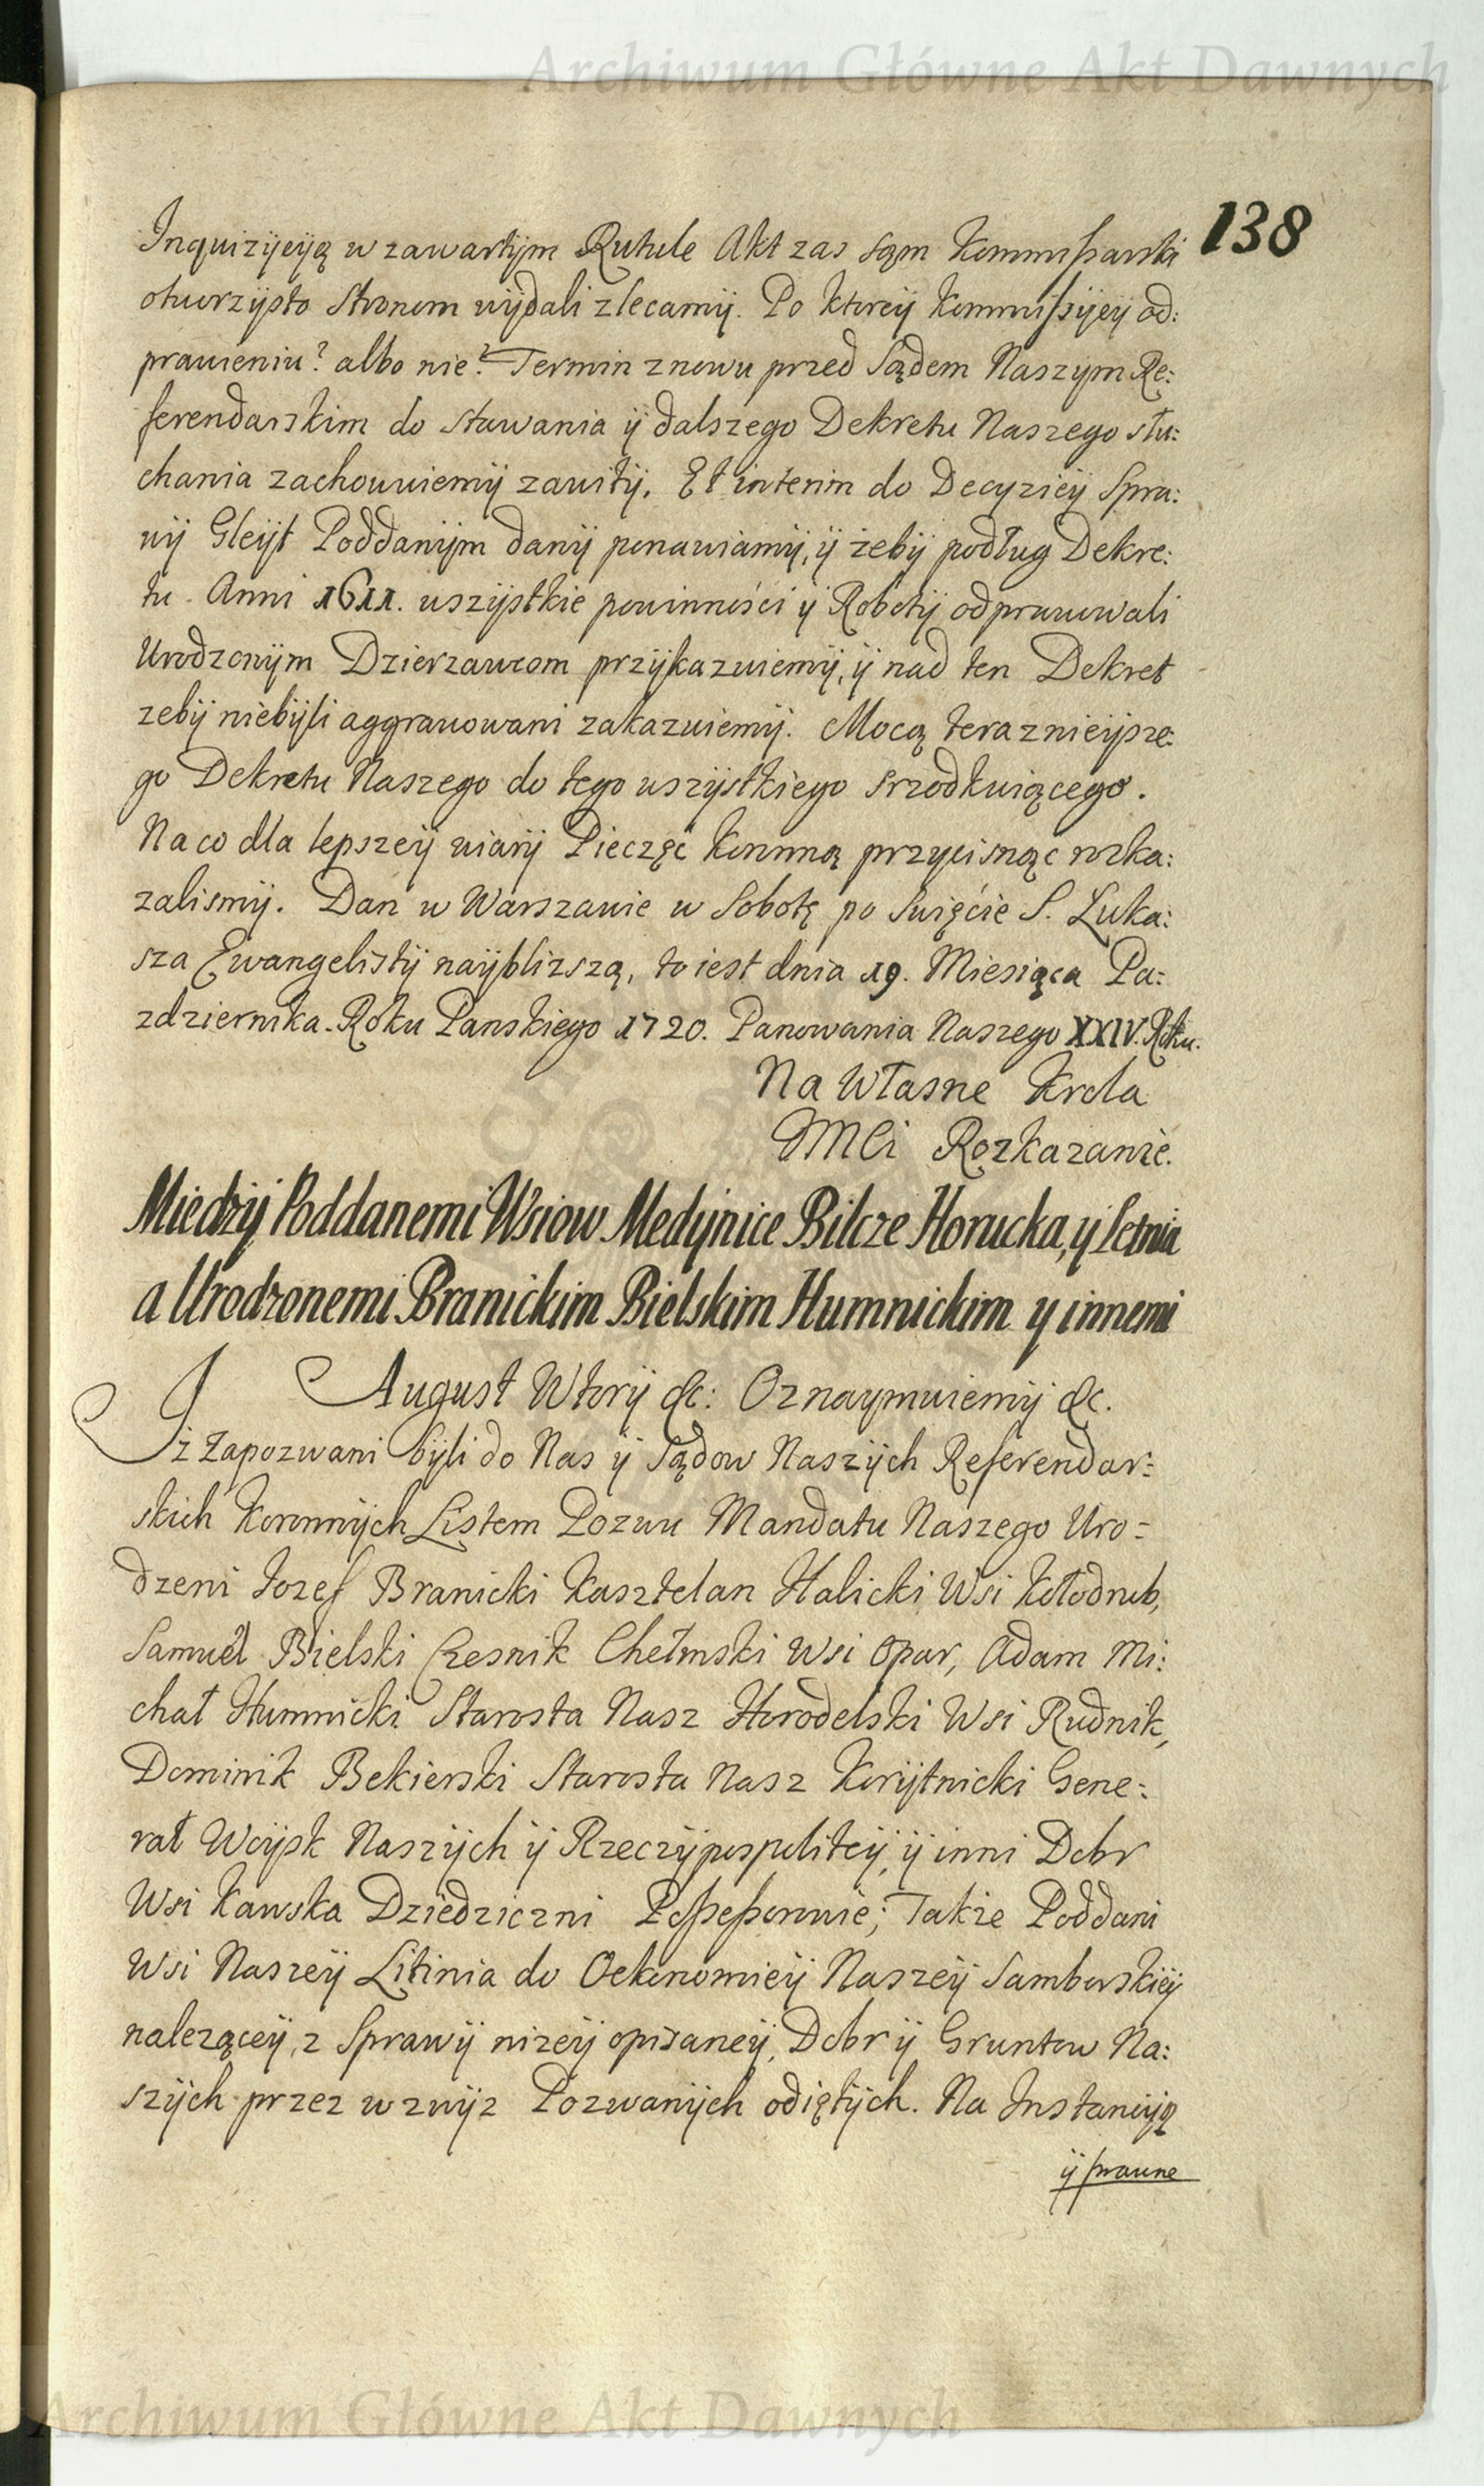 Archiwum Główne Akt Dawnych
138
Inquizÿcÿą w zawartÿm Rutule Akt zas sąm Kommissarski
otworzÿsto Stronom wÿdali zlecamÿ. Po ktoreÿ Kommissÿeÿ od:
prawieniu? albo nie? Termin znowu przed Sądem Naszym Re:
ferendarskim do stawania ÿ dalszego Dekretu Naszego słu:
chania zachowuiemÿ zawitÿ. Et interim do Decyzieÿ Spra:
wÿ Gleÿt Poddanÿm danÿ ponawiamÿ, ÿ żebÿ podług Dekre:
tu Anni 1611. wszÿstkie powinności ÿ Robotÿ odprawowali
Urodzonÿm Dzierzawcom przÿkazuiemÿ, ÿ nad ten Dekret
zebÿ niebÿli aggrawowani zakazuiemÿ. Mocą teraznieÿsze:
go Dekretu Naszego do tego wszÿstkiego srzodkuiącego.
Na co dla lepszeÿ wiarÿ Pieczęć Koronną przycisnąc rozka:
zalismÿ. Dan w Warszawie w Sobotę po Swięćie S. Luka:
sza Ewangelistÿ naÿblizszą, to iest dnia 19. Miesiąca Pa:
zdziernika. Roku Panskiego 1720. Panowania Naszego XXIV. Roku.
Na Własne Krola
JMCi Rozkazanie.
Miedzÿ Poddanemi Wsiow Medÿnice Bilcze Horucka, y Letnia
a Urodzonemi Branickim Bielskim Humnickim y innemi
August Wtorÿ &c: Oznaymuiemÿ &c.
Iż Zapozwani bÿli do Nas ÿ Sądow Naszÿch Referendar:
skich Koronnÿch Listem Pozwu Mandatu Naszego Uro=
dzeni Jozef Branicki Kasztelan Halicki Wsi Kołodrub,
Samuel Bielski Czesnik Chełmski Wsi Opar, Adam Mi:
chał Humnicki Starosta Nasz Horodelski Wsi Rudnik,
Dominik Bekierski Starosta Nasz Korÿtnicki Gene:
rał Woÿsk Naszÿch ÿ Rzeczÿpospoliteÿ, ÿ inni Dobr
Wsi Kawska Dziedziczni Possessorowie; Takze Poddani
Wsi Naszeÿ Litinia do Oekonomieÿ Naszeÿ Samborskieÿ
naleząceÿ, z Sprawÿ nizeÿ opisaneÿ, Dobr ÿ Gruntow Na:
szÿch przez wzwÿz Pozwanÿch odiętÿch. Na Instancÿą
ÿ prawne
Archiwum Główne Akt Dawnych